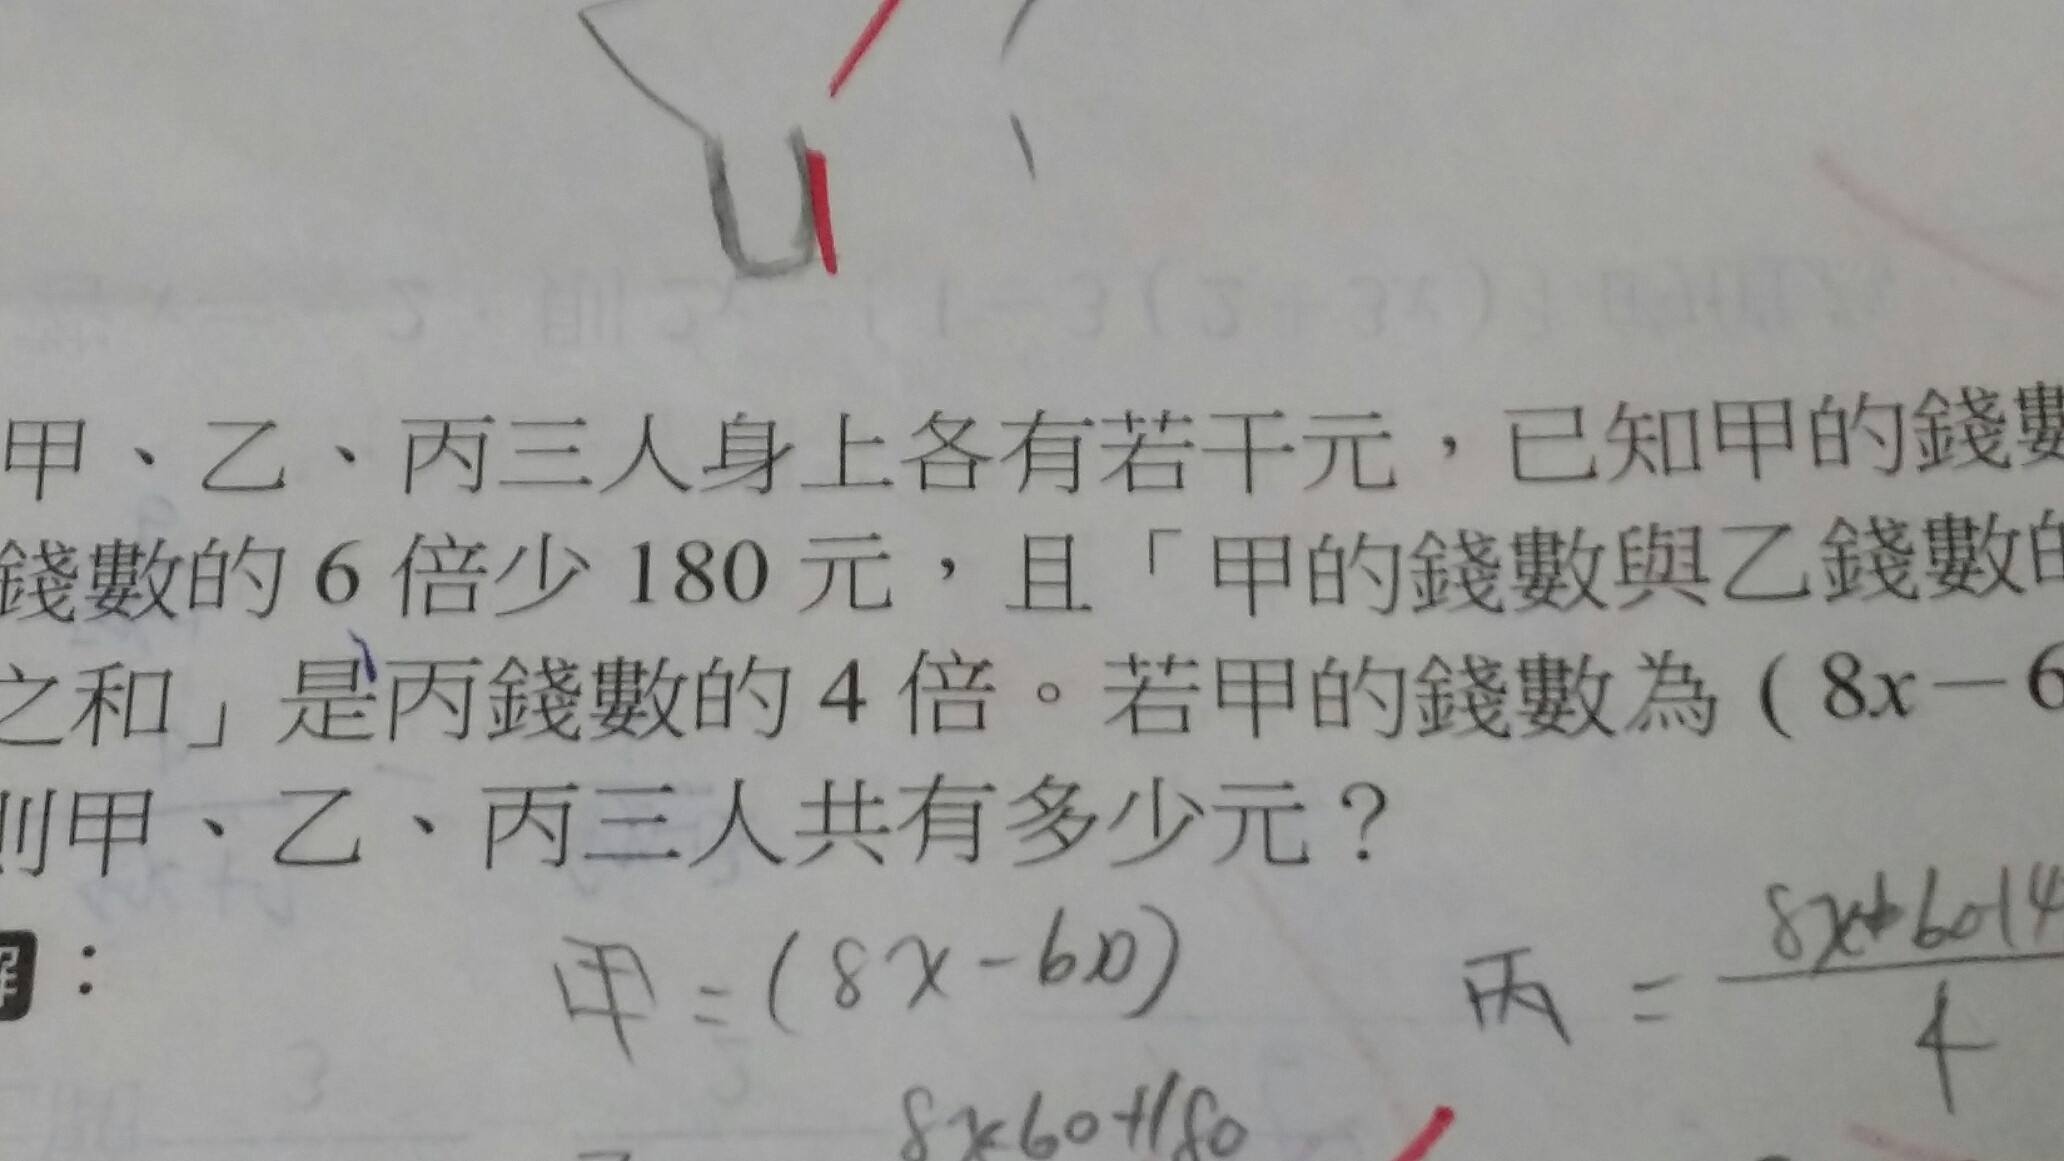 甲、乙、丙三人身上各有若干元，已知甲的錢數
錢數的 6 倍少 180 元，且「甲的錢數與乙錢數的
之和」是丙錢數的 4 倍。若甲的錢數為 ( 8x－6
則甲、乙、丙三人共有多少元？
解：
甲 = (8x-60) 丙 =
4